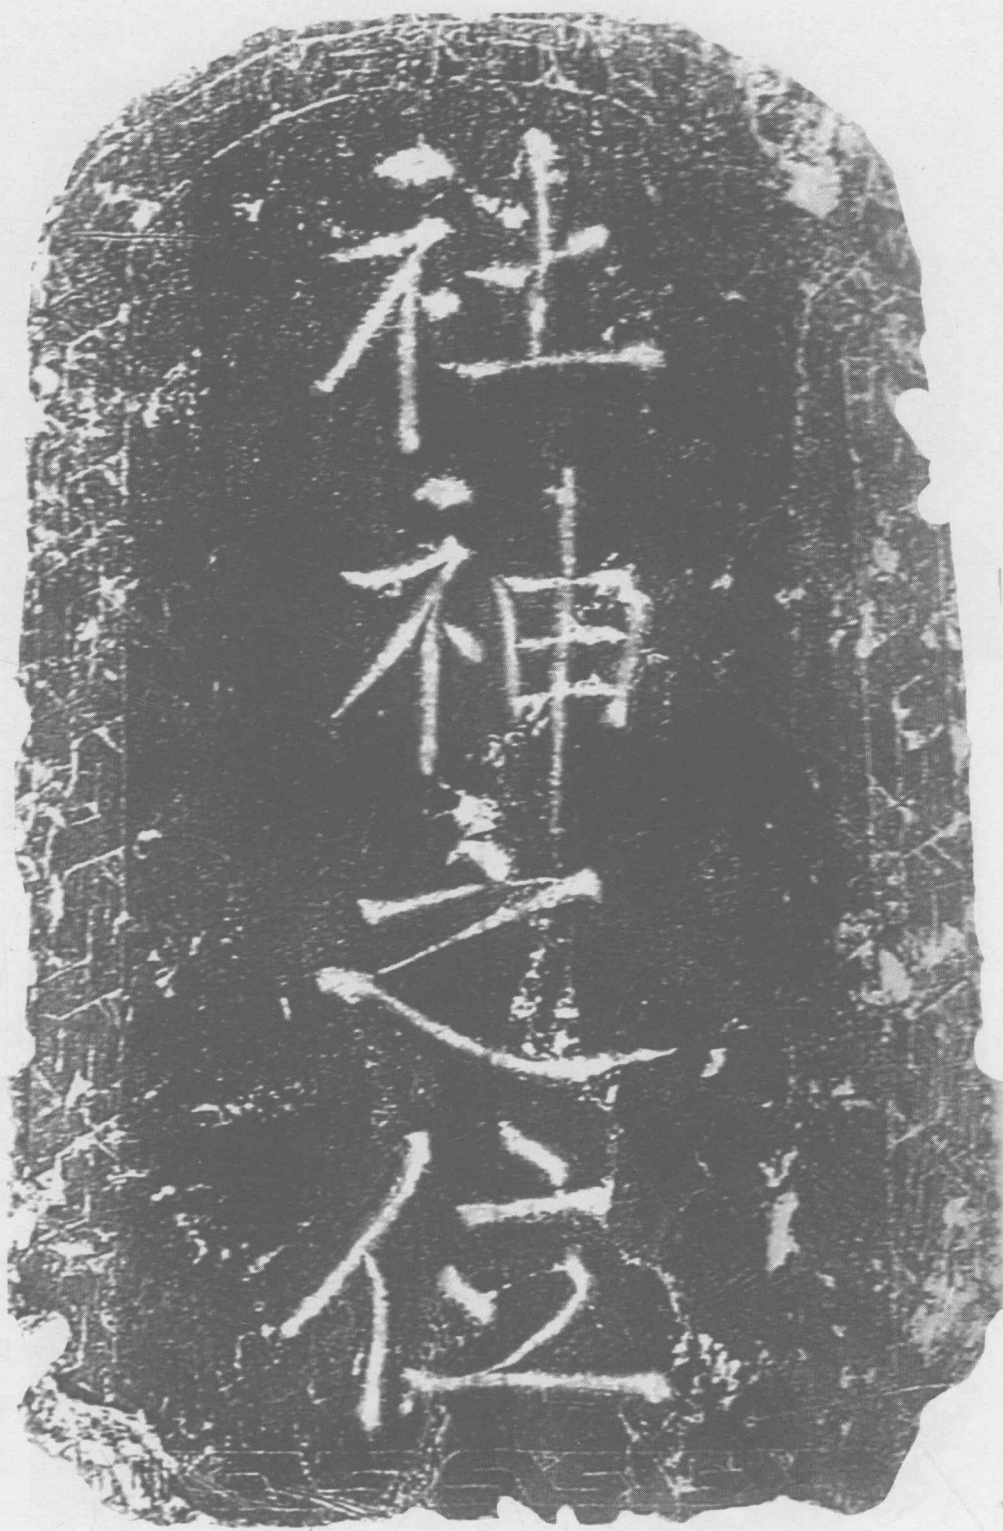 社神之位